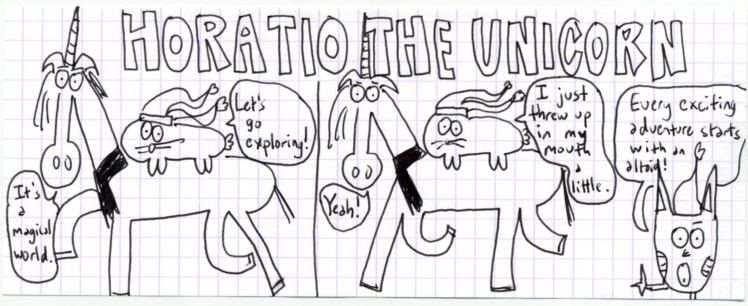 HORATIO THE UNICORN
It's
a
magical
world.
Let's
go
exploring!
Yeah!
I just
threw up
in my
mouth
a
little.
Every exciting
adventure starts
with an
altoid!